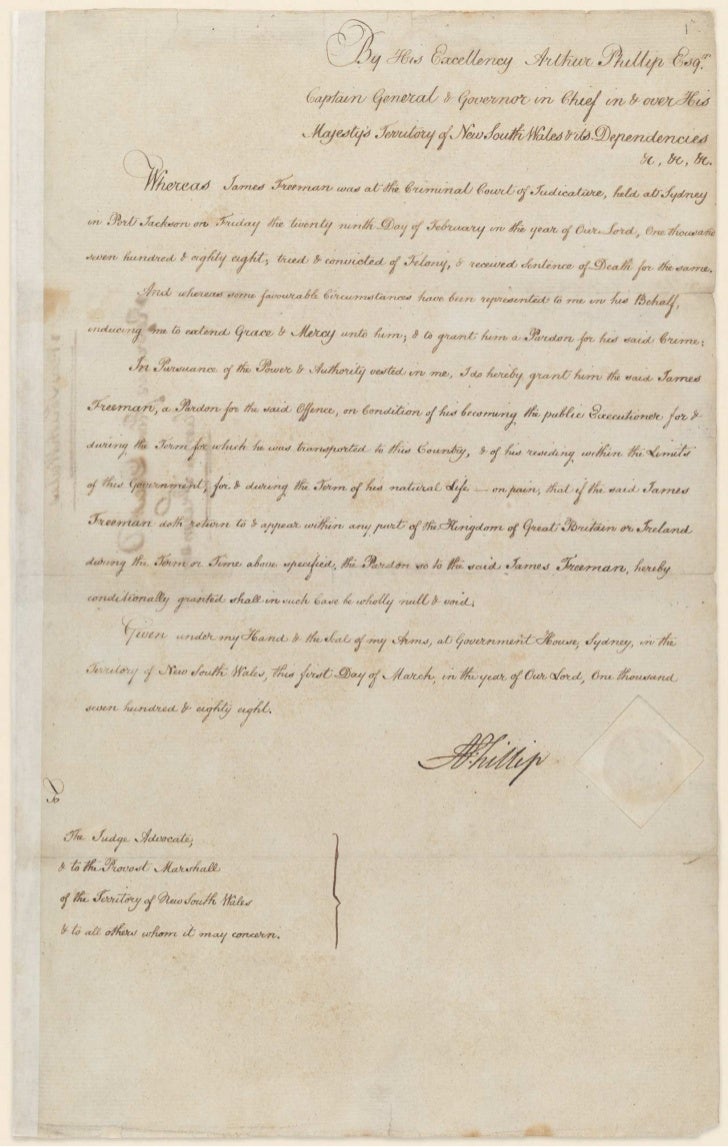 1
By His Excellency Arthur Phillip Esqr.
Captain General & Governor in Chief in & over His
Majesty's Territory of New South Wales & its Dependencies
&c, &c, &c.
Whereas James Freeman was at the Criminal Court of Judicature, held at Sydney
in Port Jackson on Friday the twenty ninth Day of February in the year of Our Lord, One thousand
seven hundred & eighty eight; tried & convicted of Felony, & received Sentence of Death for the same.
And whereas some favourable Circumstances have been represented to me in his Behalf,
inducing me to extend Grace & Mercy unto him; & to grant him a Pardon for his said Crime:
In Pursuance of the Power & Authority vested in me, I do hereby grant him the said James
Freeman, a Pardon for the said Offence, on Condition of his becoming the public Executioner for &
during the Term for which he was transported to this Country, & of his residing within the Limits
of this Government, for & during the Term of his natural Life — on pain, that if the said James
Freeman doth return to & appear within any part of the Kingdom of Great Britain or Ireland
during the Term or Time above specified, the Pardon so to the said James Freeman, hereby
conditionally granted shall in such Case be wholly null & void.
Given under my Hand & the Seal of my Arms, at Government House, Sydney, in the
Territory of New South Wales, this first Day of March, in the year of Our Lord, One thousand
seven hundred & eighty eight.
A Phillip
To
The Judge Advocate;
& to the Provost Marshall
of the Territory of New South Wales
& to all others whom it may concern.